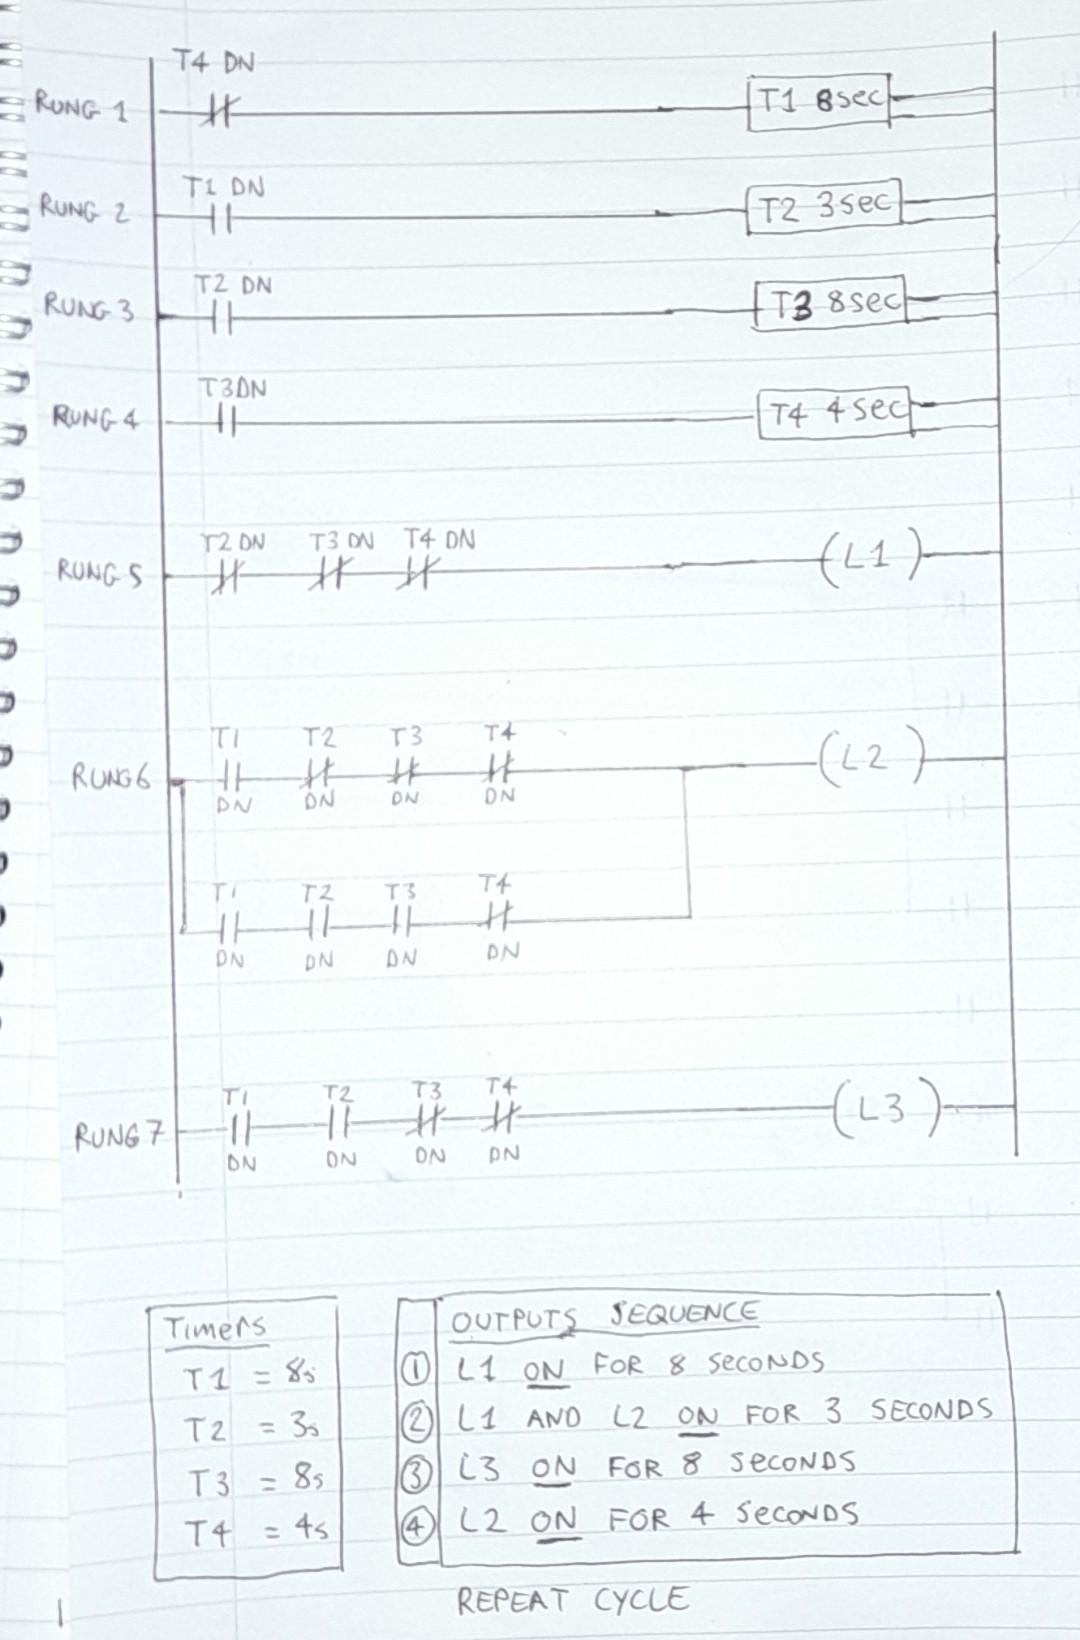 T4 DN
RUNG 1 T1 8sec
T1 DN
RUNG 2 T2 3sec
T2 DN
RUNG 3 T3 8sec
T3DN
RUNG 4 T4 4sec
T2 DN T3 DN T4 DN
RUNG 5 (L1)
T1 T2 T3 T4
RUNG 6 (L2)
DN DN DN DN
T1 T2 T3 T4
DN DN DN DN
T1 T2 T3 T4
RUNG 7 (L3)
DN DN DN DN
Timers
T1 = 8s
T2 = 3s
T3 = 8s
T4 = 4s
OUTPUTS SEQUENCE
① L1 ON FOR 8 SECONDS
② L1 AND L2 ON FOR 3 SECONDS
③ L3 ON FOR 8 SECONDS
④ L2 ON FOR 4 SECONDS
REPEAT CYCLE